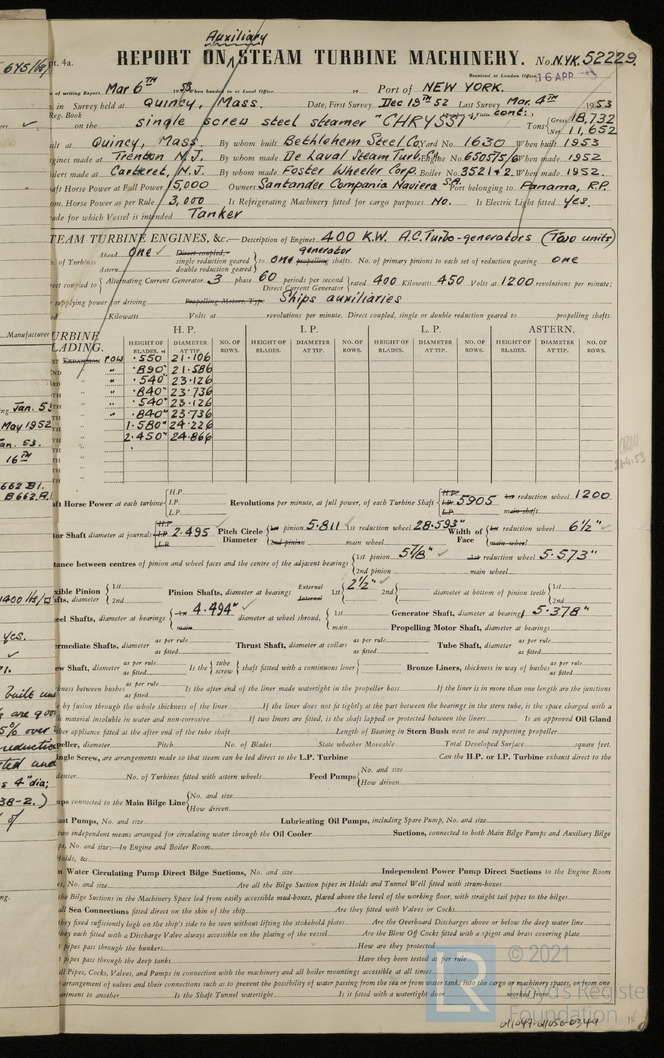 Auxiliary
pt. 4a. REPORT ON STEAM TURBINE MACHINERY. No. N.YK. 52229.
Received at London Office 16 APR
of writing Report Mar 6TH 1953 When handed in at Local Office 19 Port of NEW YORK.
in Survey held at Quincy, Mass. Date, First Survey Dec 19TH 52 Last Survey Mar. 4TH 1953
Reg. Book on the single screw steel steamer "CHRYSSI" cont: Tons Gross 18,732 Net 11,652
built at Quincy, Mass. By whom built Bethlehem Steel Co. Yard No. 1630 When built 1953
Engines made at Trenton N.J. By whom made De Laval Steam Turb. Co. Engine No. When made 1952
Boilers made at Carteret, N.J. By whom made Foster Wheeler Corp. Boiler No. 3521 & 2. When made 1952.
Shaft Horse Power at Full Power 15,000 Owners Santander Compania Naviera S.A. Port belonging to Panama, R.P.
Nom. Horse Power as per Rule 3,000 Is Refrigerating Machinery fitted for cargo purposes No. Is Electric Light fitted Yes.
Trade for which Vessel is intended Tanker
STEAM TURBINE ENGINES, &c.—Description of Engines 400 K.W. A.C. Turbo-generators (Two units)
No. of Turbines Ahead One Astern Direct coupled, single reduction geared double reduction geared to one generator propelling shafts. No. of primary pinions to each set of reduction gearing one
direct coupled to Alternating Current Generator 3 phase 60 periods per second Direct Current Generator rated 400 Kilowatts 450 Volts at 1200 revolutions per minute;
for supplying power for driving Propelling Motors, Type Ships auxiliaries
Kilowatts Volts at revolutions per minute. Direct coupled, single or double reduction geared to propelling shafts.
TURBINE BLADING. H. P. I. P. L. P. ASTERN.
HEIGHT OF BLADES. DIAMETER AT TIP. NO. OF ROWS. HEIGHT OF BLADES. DIAMETER AT TIP. NO. OF ROWS. HEIGHT OF BLADES. DIAMETER AT TIP. NO. OF ROWS. HEIGHT OF BLADES. DIAMETER AT TIP. NO. OF ROWS.
EXPANSION ROW .550 21.106
.890" 21.586
.540" 23.126
.840" 23.736
.540" 23.126
.840" 23.736
1.580" 24.226
2.450" 24.866
Shaft Horse Power at each turbine H.P. I.P. L.P. Revolutions per minute, at full power, of each Turbine Shaft H.P. I.P. L.P. 5905 1st reduction wheel 1200 main shaft
Rotor Shaft diameter at journals H.P. I.P. L.P. 2.495 Pitch Circle Diameter 1st pinion 5.811 2nd pinion 1st reduction wheel 28.593" main wheel Width of Face 1st reduction wheel 6½" main wheel
Distance between centres of pinion and wheel faces and the centre of the adjacent bearings 1st pinion 5⅞" 2nd pinion 1st reduction wheel 5.573" main wheel
Flexible Pinion Shafts, diameter 1st 2nd Pinion Shafts, diameter at bearings External Internal 1st 2½" 2nd diameter at bottom of pinion teeth 1st 2nd
Wheel Shafts, diameter at bearings 1st main 4.494" diameter at wheel shroud, 1st main Generator Shaft, diameter at bearings 5.378"
Propelling Motor Shaft, diameter at bearings
Intermediate Shafts, diameter as per rule as fitted Thrust Shaft, diameter at collars as per rule as fitted Tube Shaft, diameter as per rule as fitted
Screw Shaft, diameter as per rule as fitted Is the tube screw shaft fitted with a continuous liner Bronze Liners, thickness in way of bushes as per rule as fitted
Thickness between bushes as per rule as fitted Is the after end of the liner made watertight in the propeller boss If the liner is in more than one length are the junctions
made by fusion through the whole thickness of the liner If the liner does not fit tightly at the part between the bearings in the stern tube, is the space charged with a
plastic material insoluble in water and non-corrosive If two liners are fitted, is the shaft lapped or protected between the liners Is an approved Oil Gland
or other appliance fitted at the after end of the tube shaft Length of Bearing in Stern Bush next to and supporting propeller
Propeller, diameter Pitch No. of Blades State whether Moveable Total Developed Surface square feet.
If Single Screw, are arrangements made so that steam can be led direct to the L.P. Turbine Can the H.P. or I.P. Turbine exhaust direct to the
Condenser No. of Turbines fitted with astern wheels Feed Pumps No. and size How driven
Pumps connected to the Main Bilge Line No. and size How driven
Ballast Pumps, No. and size Lubricating Oil Pumps, including Spare Pump, No. and size
Are two independent means arranged for circulating water through the Oil Cooler Suctions, connected to both Main Bilge Pumps and Auxiliary Bilge
Pumps, No. and size:—In Engine and Boiler Room
In Holds, &c.
Main Water Circulating Pump Direct Bilge Suctions, No. and size Independent Power Pump Direct Suctions to the Engine Room
Bilges, No. and size Are all the Bilge Suction pipes in Holds and Tunnel Well fitted with strum-boxes
Are the Bilge Suctions in the Machinery Space led from easily accessible mud-boxes, placed above the level of the working floor, with straight tail pipes to the bilges
Are all Sea Connections fitted direct on the skin of the ship Are they fitted with Valves or Cocks
Are they fixed sufficiently high on the ship's side to be seen without lifting the stokehold plates Are the Overboard Discharges above or below the deep water line
Are they each fitted with a Discharge Valve always accessible on the plating of the vessel Are the Blow Off Cocks fitted with a spigot and brass covering plate
What pipes pass through the bunkers How are they protected
What pipes pass through the deep tanks Have they been tested as per rule
Are all Pipes, Cocks, Valves, and Pumps in connection with the machinery and all boiler mountings accessible at all times
Is the arrangement of valves and their connections such as to prevent the possibility of water passing from the sea or from water tanks into the cargo or machinery spaces, or from one
compartment to another Is the Shaft Tunnel watertight Is it fitted with a watertight door worked from
© 2021
Lloyd's Register
Foundation